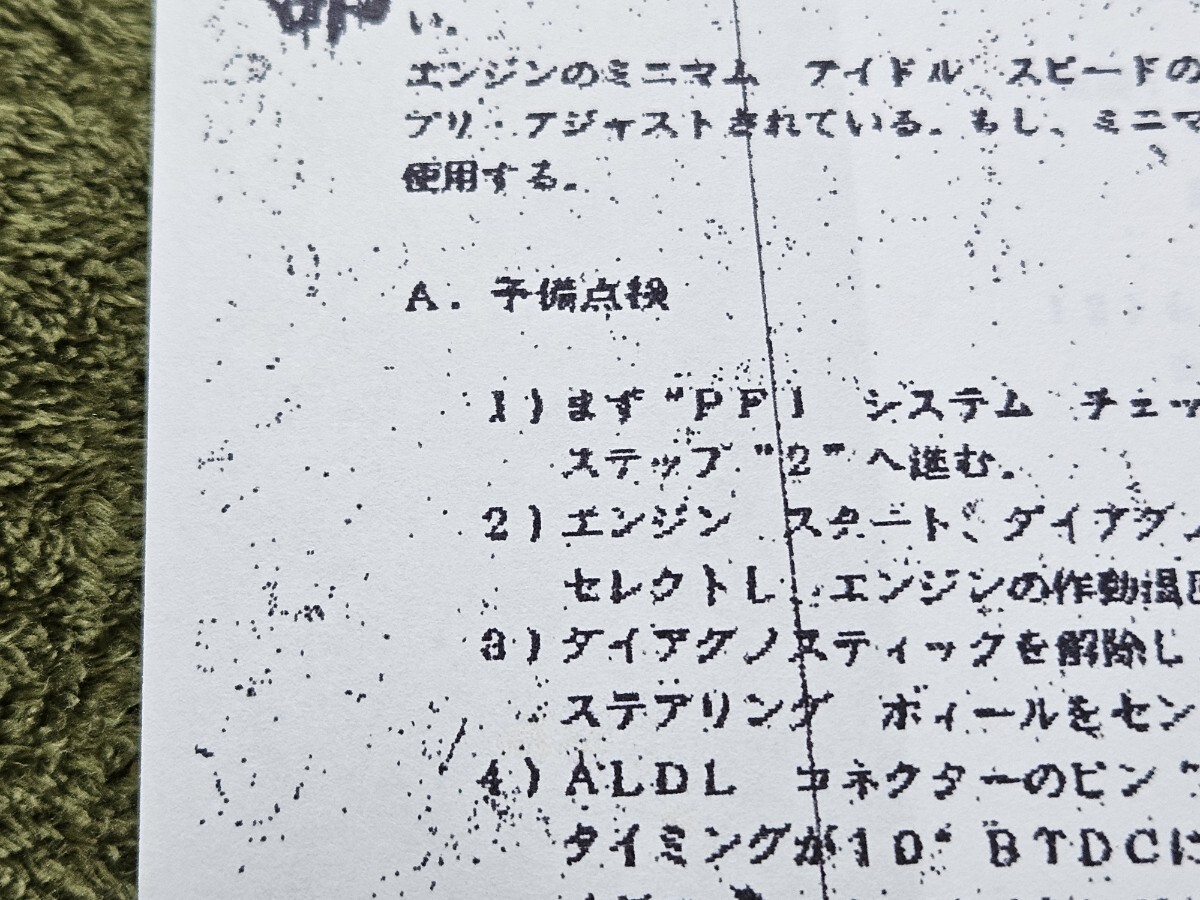 い。
エンジンのミニマム アイドル スピードの
プリ・アジャストされている。もし、ミニマ
使用する。
A. 予備点検
1)まず"PFI システム チェッ
ステップ"2"へ進む。
2)エンジン スタート、ダイアグノ
セレクトし、エンジンの作動温度
3)ダイアグノスティックを解除し
ステアリング ホィールをセン
4)ALDL コネクターのピン
タイミングが10°BTDCに